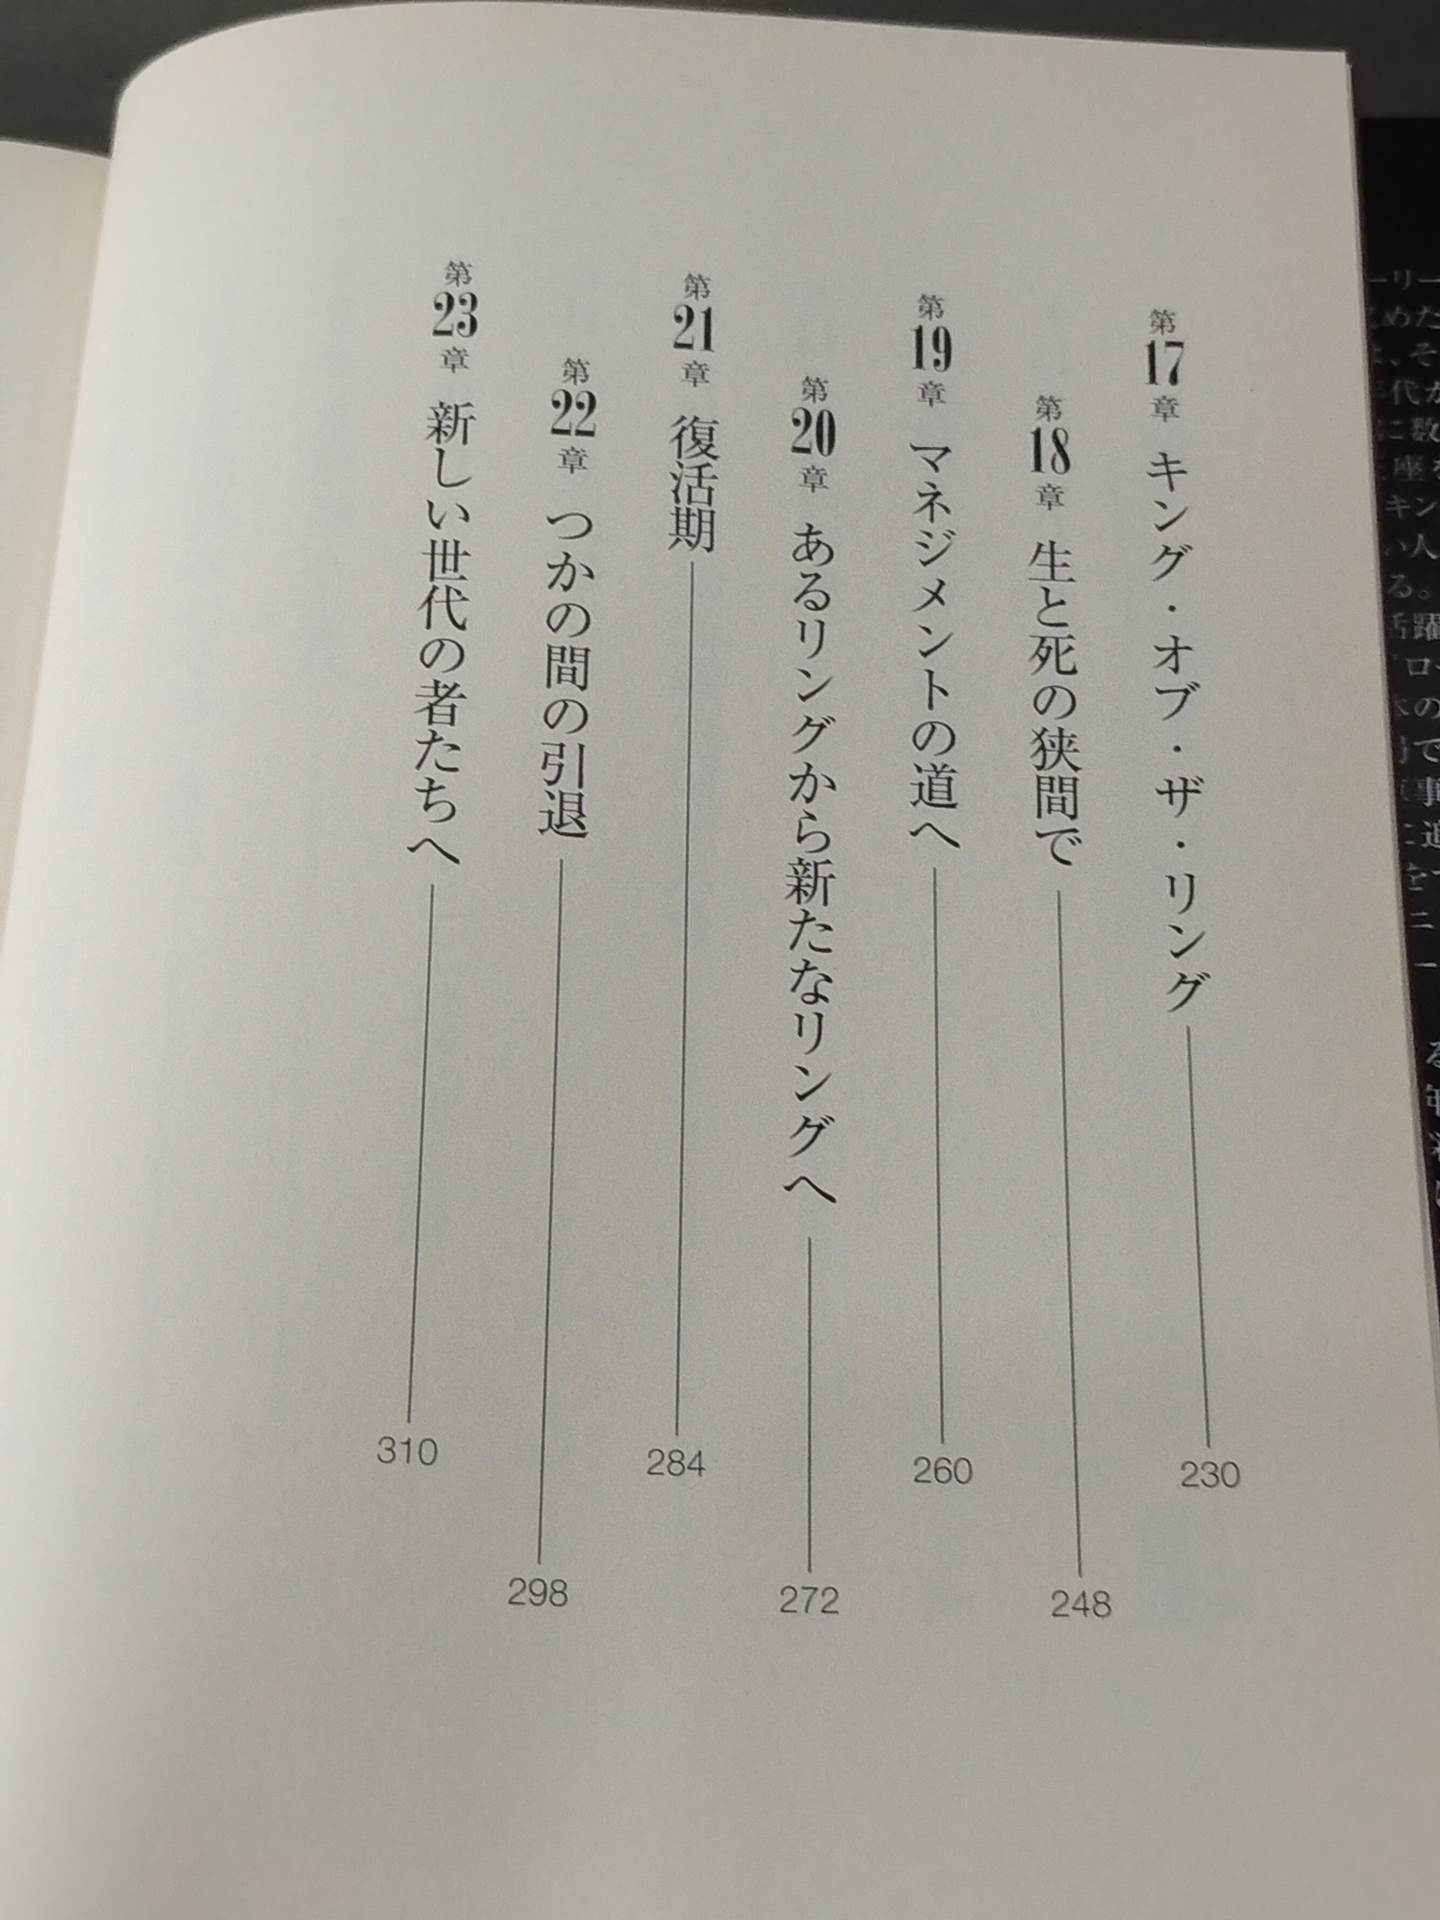 第17章 キング・オブ・ザ・リング 230
第18章 生と死の狭間で 248
第19章 マネジメントの道へ 260
第20章 あるリングから新たなリングへ 272
第21章 復活期 284
第22章 つかの間の引退 298
第23章 新しい世代の者たちへ 310